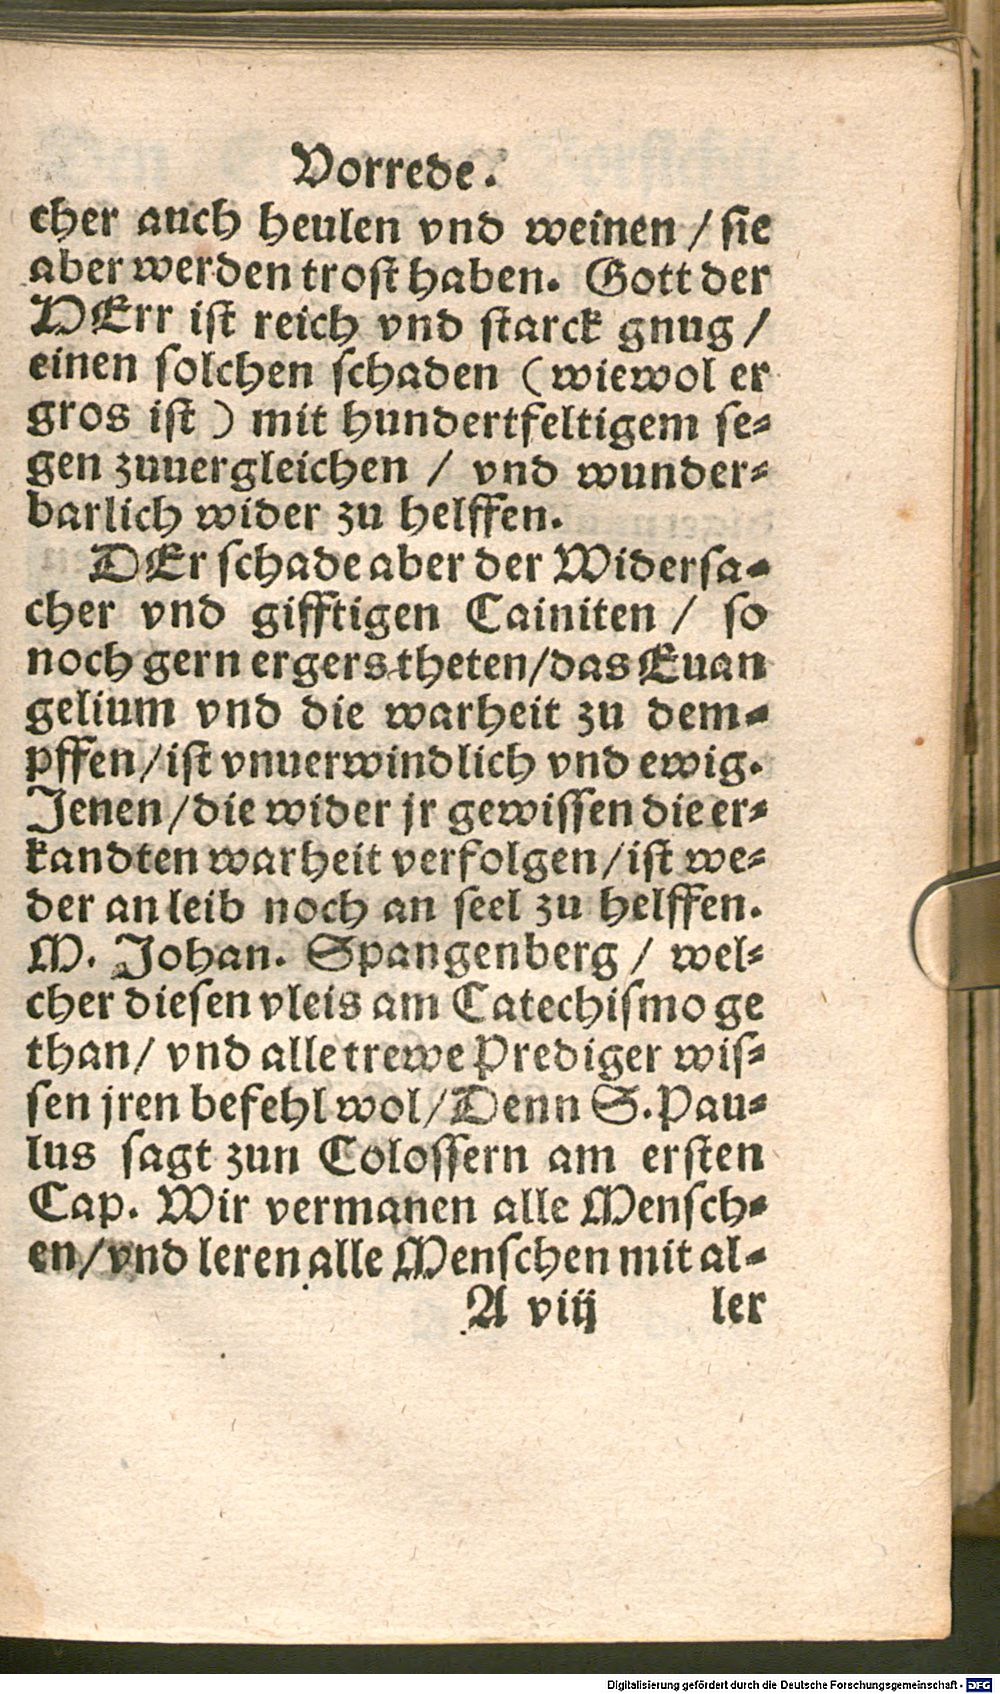 Vorrede.
cher auch heulen vnd weinen / sie
aber werden trost haben. Gott der
HErr ist reich vnd starck gnug /
einen solchen schaden ( wiewol er
gros ist ) mit hundertfeltigem se-
gen zuuergleichen / vnd wunder-
barlich wider zu helffen.
DEr schade aber der Widersa-
cher vnd gifftigen Cainiten / so
noch gern ergers theten/das Euan
gelium vnd die warheit zu dem-
pffen/ist vnuerwindlich vnd ewig.
Jenen/die wider jr gewissen die er-
kandten warheit verfolgen/ist we-
der an leib noch an seel zu helffen.
M. Johan. Spangenberg / wel-
cher diesen vleis am Catechismo ge
than/ vnd alle trewe Prediger wis-
sen jren befehl wol/Denn S.Pau-
lus sagt zun Colossern am ersten
Cap. Wir vermanen alle Mensch-
en/vnd leren alle Menschen mit al-
A viij ler
Digitalisierung gefördert durch die Deutsche Forschungsgemeinschaft - DFG